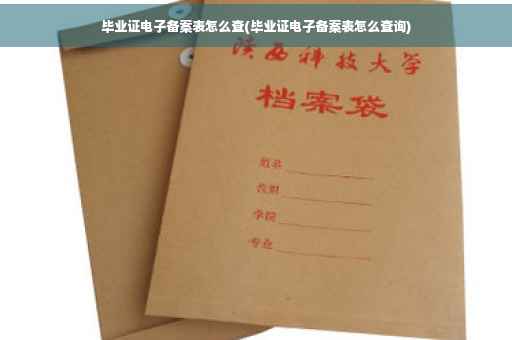 毕业证电子备案表怎么查(毕业证电子备案表怎么查询)
陕西科技大学
档案袋
姓名
学院
专业